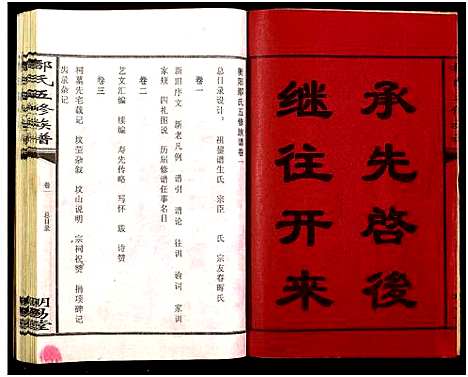 承先啓後
继往开来
衡阳邹氏五修族谱卷一
总目录设计, 祖鉴谱生氏 宗臣 氏 宗友春晖氏
卷一
新旧序文 新老凡例 谱引 谱论 往训 谕词 家训
家规 四礼图说 历届修谱任事名目
卷二
艺文汇编 续编 寿先传略 写怀 跋 诗赞
卷三
祠墓先宅载记 坟茔杂叙 坟山说明 宗祠祝赞 捐项碑记
杂记
氏五修族谱
卷一
总目录
明易堂